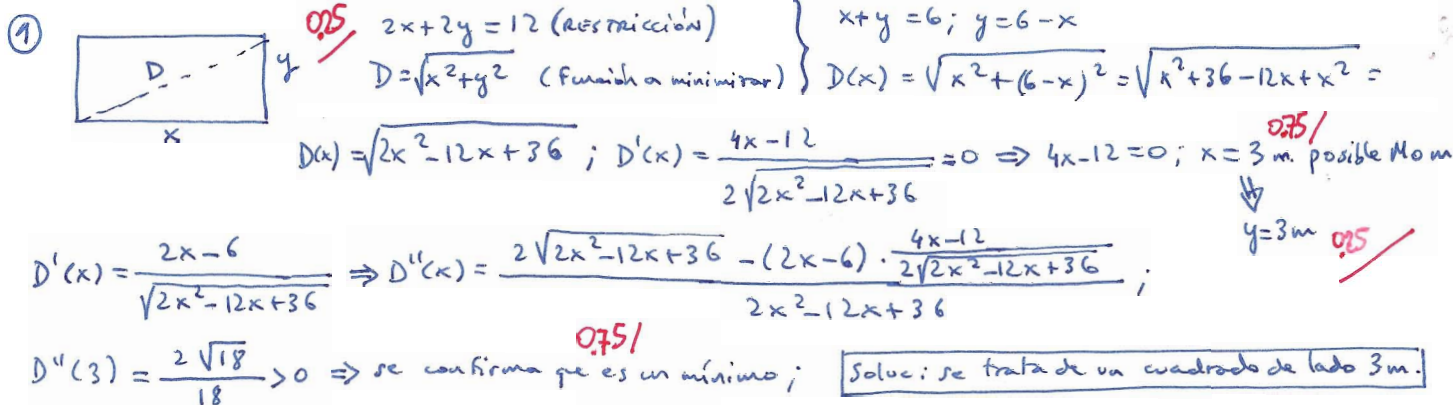 ① 0'25/ 2x+2y=12 (RESTRICCIÓN) } x+y=6; y=6-x
D y D=√(x²+y²) (Función a minimizar) } D(x)=√(x²+(6-x)²)=√(x²+36-12x+x²)=
x D(x)=√(2x²-12x+36); D'(x)=(4x-12)/(2√(2x²-12x+36))=0 ⇒ 4x-12=0; x=3m. posible M o m 0'75/
⇓
y=3m 0'25/
D'(x)=(2x-6)/√(2x²-12x+36) ⇒ D''(x)=(2√(2x²-12x+36)-(2x-6)·(4x-12)/(2√(2x²-12x+36)))/(2x²-12x+36);
0'75/
D''(3)=(2√18)/18>0 ⇒ se confirma que es un mínimo; Soluc: se trata de un cuadrado de lado 3m.